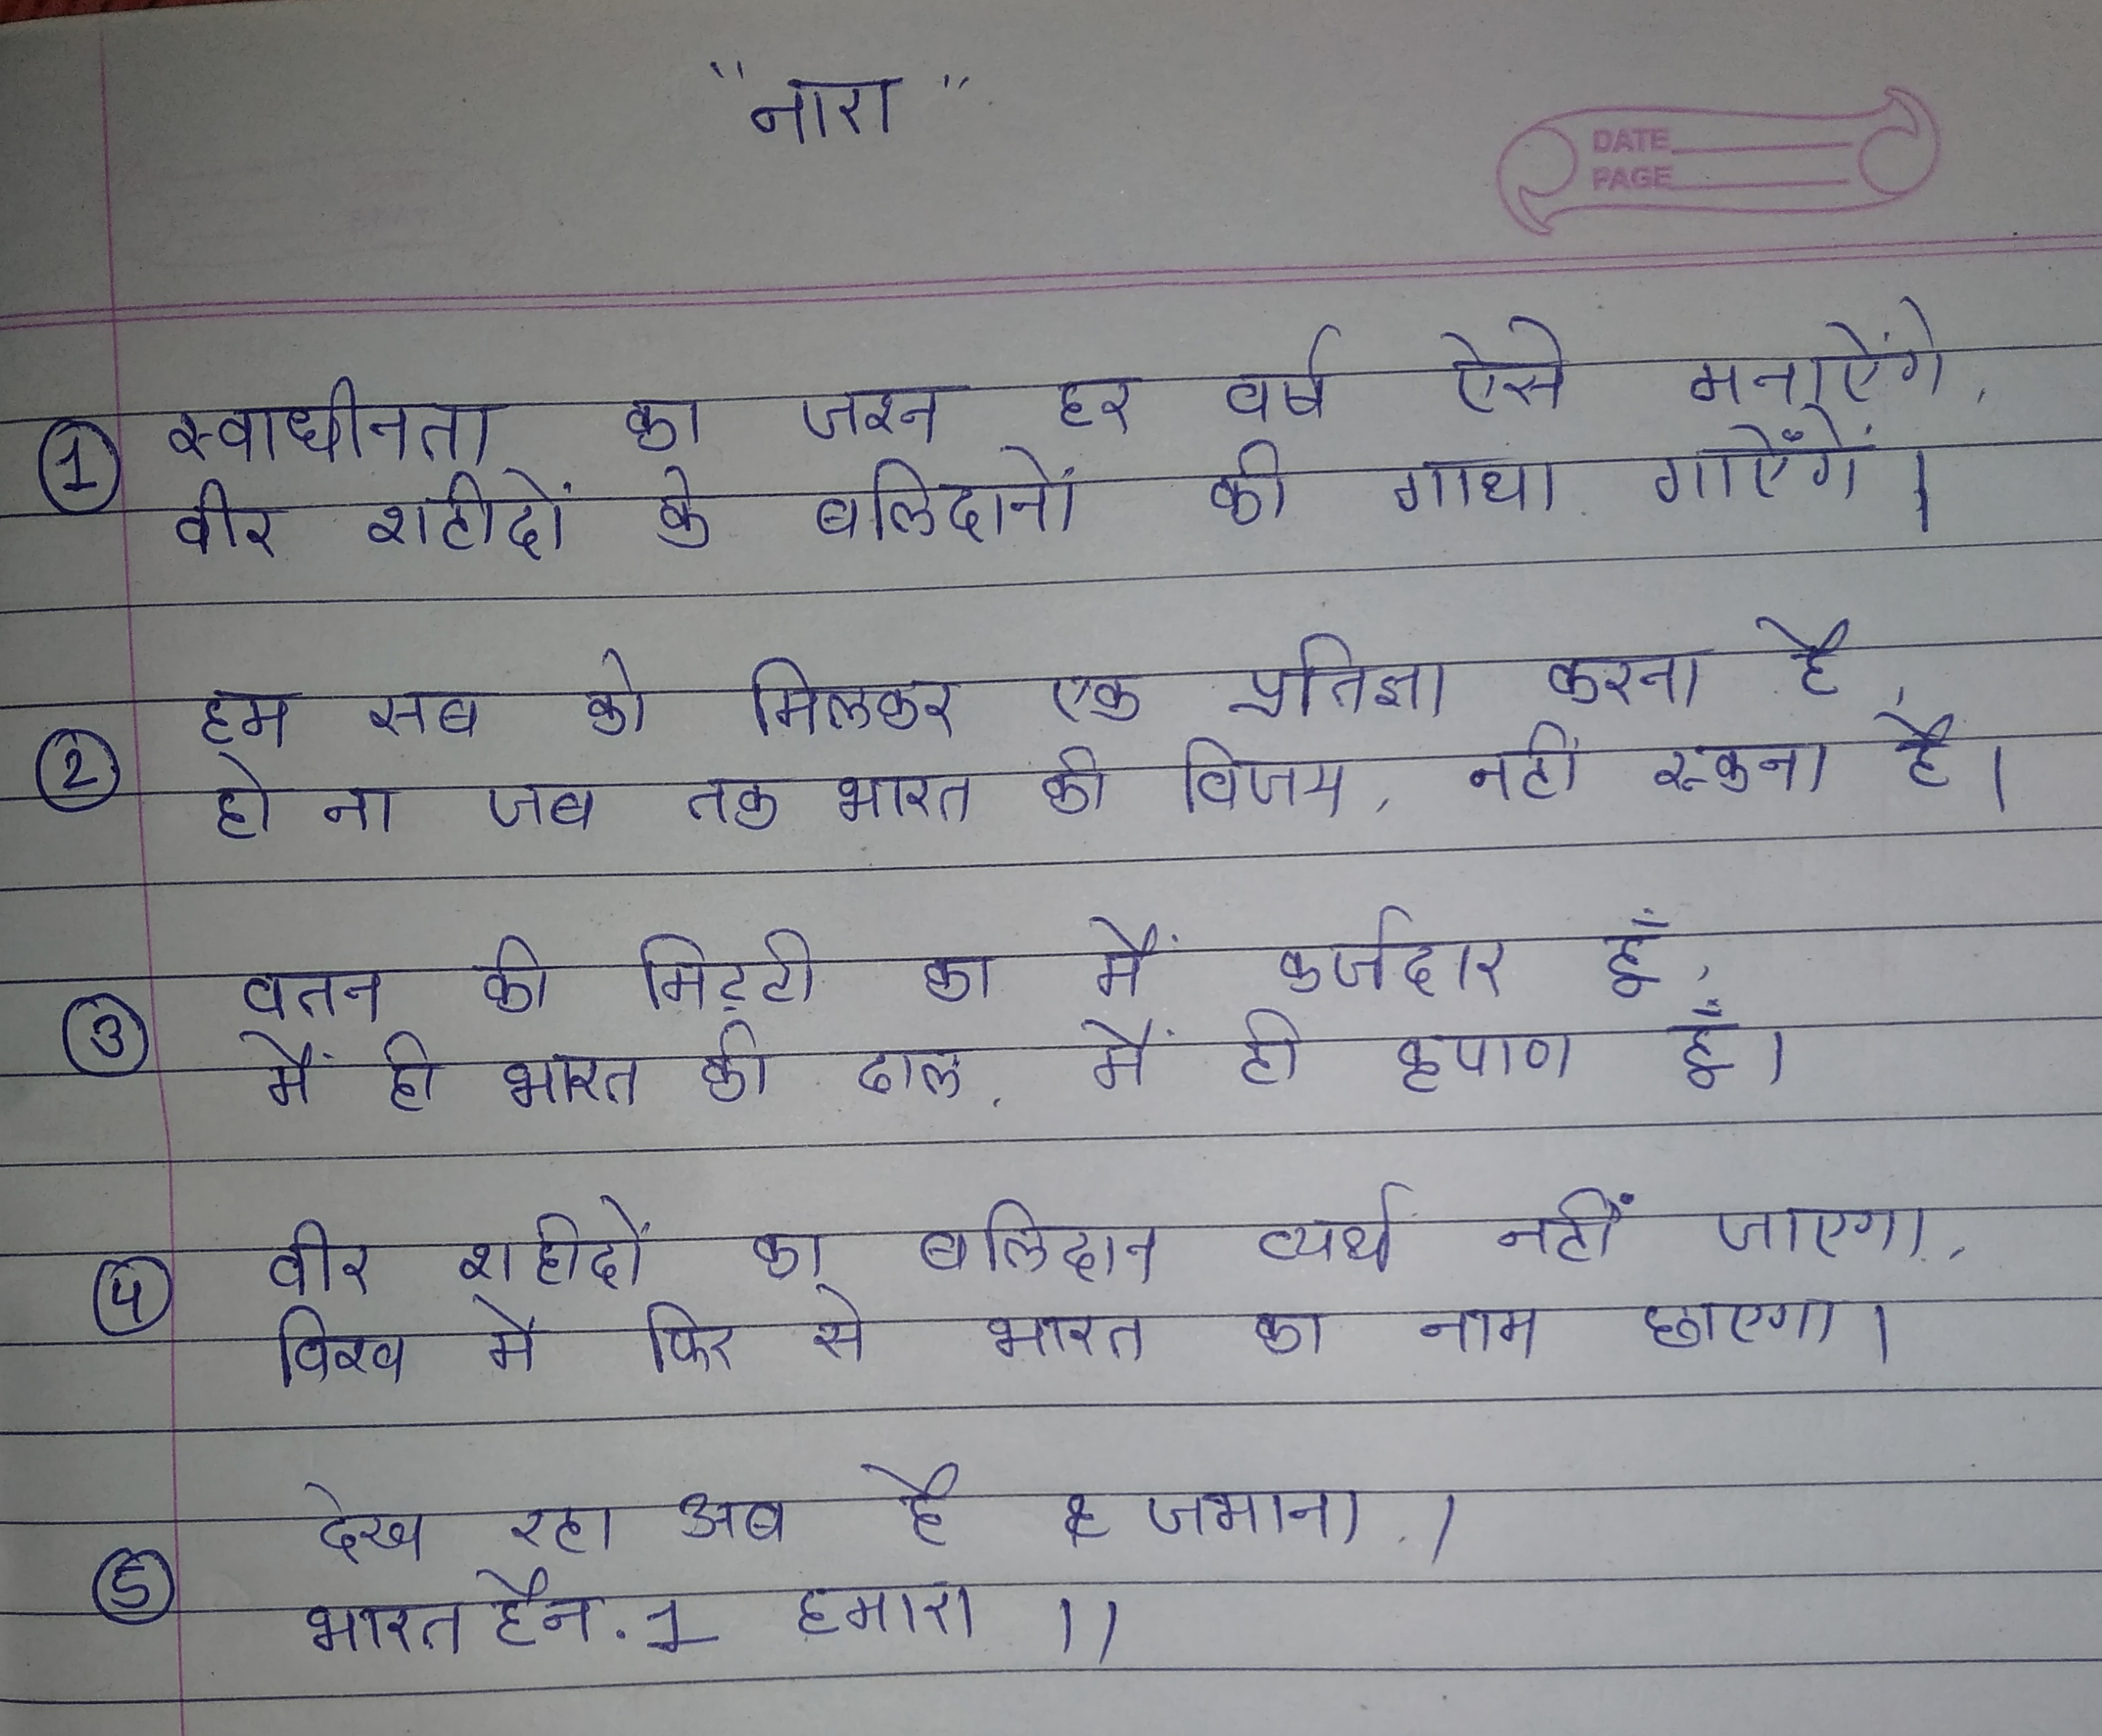 "नारा"
DATE
PAGE
① स्वाधीनता का जश्न हर वर्ष ऐसे मनाऐंगे,
वीर शहीदों के बलिदानों की गाथा गाऐँगें।
② हम सब को मिलकर एक प्रतिज्ञा करना है,
हो ना जब तक भारत की विजय, नहीं रूकना है।
③ वतन की मिट्टी का मैं कर्जदार हूँ,
मैं ही भारत की ढाल, मैं ही कृपाण हूँ।
④ वीर शहीदों का बलिदान व्यर्थ नहीं जाएगा,
विश्व में फिर से भारत का नाम छाएगा।
⑤ देख रहा अब है जमाना।
भारत है न. 1 हमारा ।।